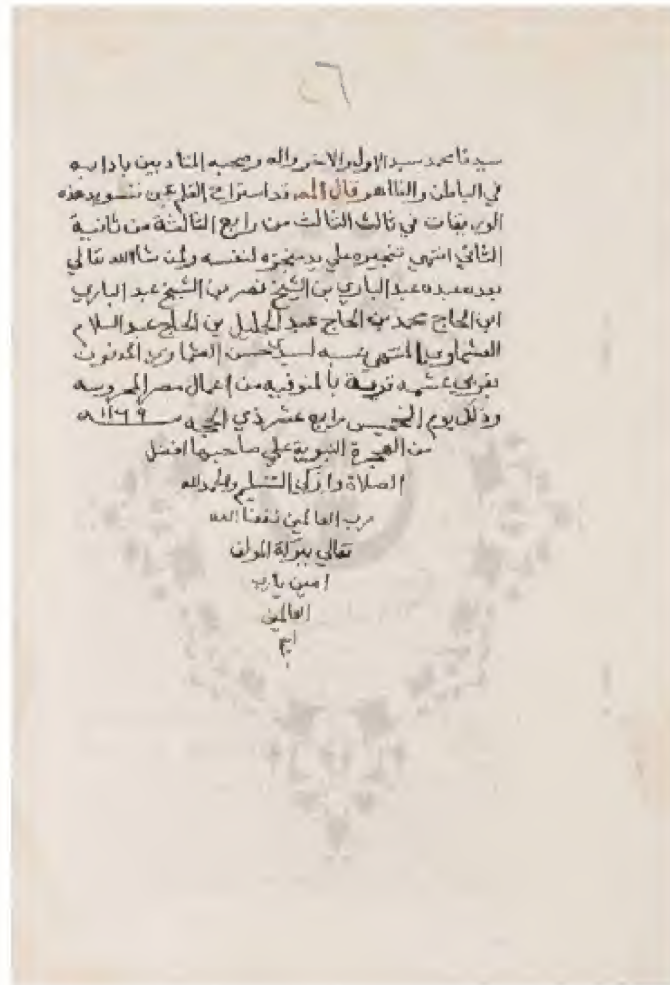 ٤٦
سيدنا محمد سيد الاول والاخر واله وصحبه المتادبين بادابه
في الباطن والظاهر قال المص قد استراح القلم من تسويد هذه
الوريقات في ثالث الثالث من رابع الثالثة من ثانية
الثاني انتهي تنجيزه علي يد منجزه لنفسه ولمن شا الله تعالي
بعده عبده عبد الباري بن الشيخ نصر بن الشيخ عبد الباري
ابن الحاج محمد بن الحاج عبد الجليل بن الحاج عبد السلام
العشماوي المنتهي نسبه لسيدي حسن العشماوي المدفون
بقرية عشمه قرية بالمنوفيه من اعمال مصر المحروسه
وذلك يوم الخميس رابع عشر ذي الحجه سنه ١١٦٩
من الهجرة النبوية علي صاحبها افضل
الصلاة وازكي التسليم والحمد لله
رب العالمين نفعنا الله
تعالي ببركة المولف
امين يا رب
العالمين